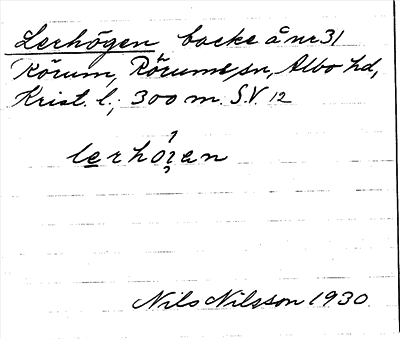 Lerhögen backe å nr 31
Rörum, Rörums sn, Albo hd,
Krist. l.; 300 m. S.V. 12
lerhöɜan
Nils Nilsson 1930.